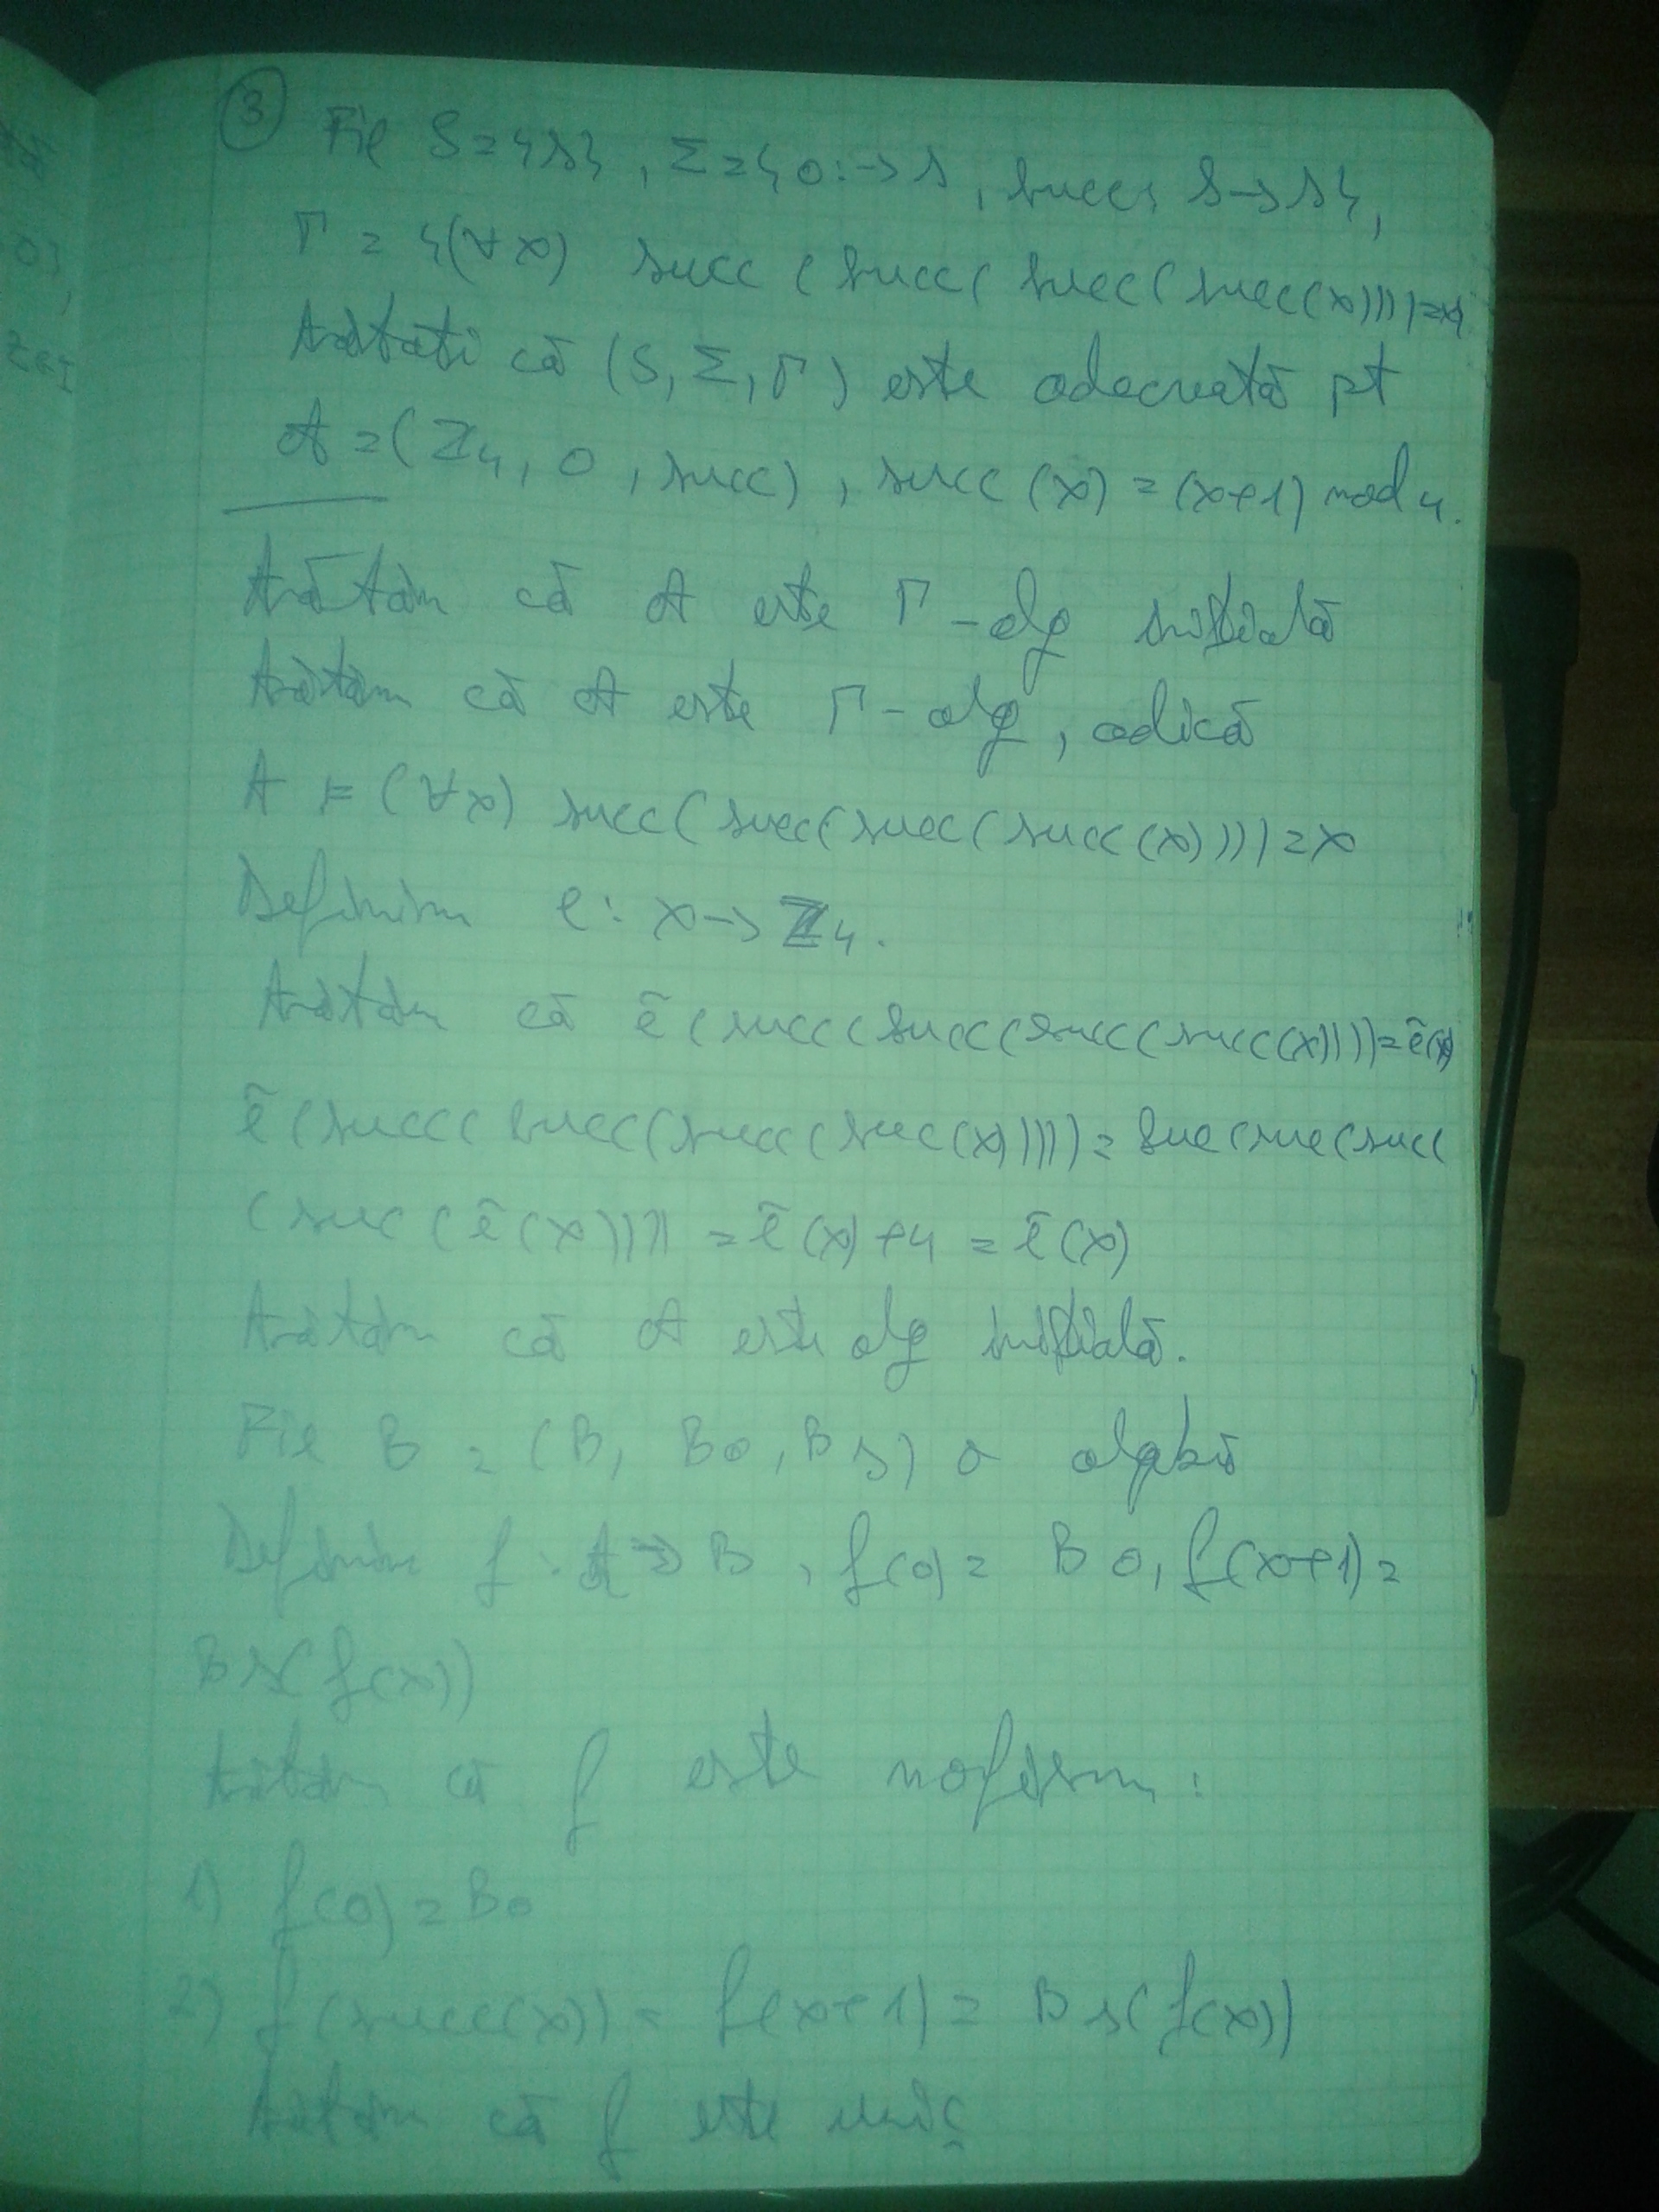 ③ Fie S={s}, Σ={0:→s, succ: s→s},
Γ = {(∀x) succ(succ(succ(succ(x))))=x}
Arătați că (S, Σ, Γ) este adecvată pt
A=(ℤ₄, 0, succ), succ(x) = (x+1) mod 4.
Arătăm că A este Γ-alg inițială
Arătăm că A este Γ-alg, adică
A ⊨ (∀x) succ(succ(succ(succ(x))))=x
Definim e: x→ℤ₄.
Arătăm că ẽ(succ(succ(succ(succ(x)))))=ẽ(x)
ẽ(succ(succ(succ(succ(x)))))= suc(suc(succ
(suc(ẽ(x)))) = ẽ(x)+4 = ẽ(x)
Arătăm că A este alg inițială.
Fie B = (B, B0, Bs) o algebră
Definim f: A→B, f(0)= B0, f(x+1)=
Bs(f(x))
Arătăm că f este mofism:
1) f(0)=B0
2) f(succ(x)) = f(x+1) = Bs(f(x))
Arătăm că f este unic